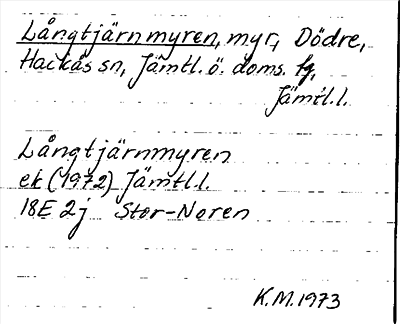 Långtjärnmyren, myr, Dödre,
Hackås sn, Jämtl. ö. doms. fg,
Jämtl.l.
Långtjärnmyren
ek (1972) Jämtl.l.
18E 2j Stor-Noren
K.M.1973